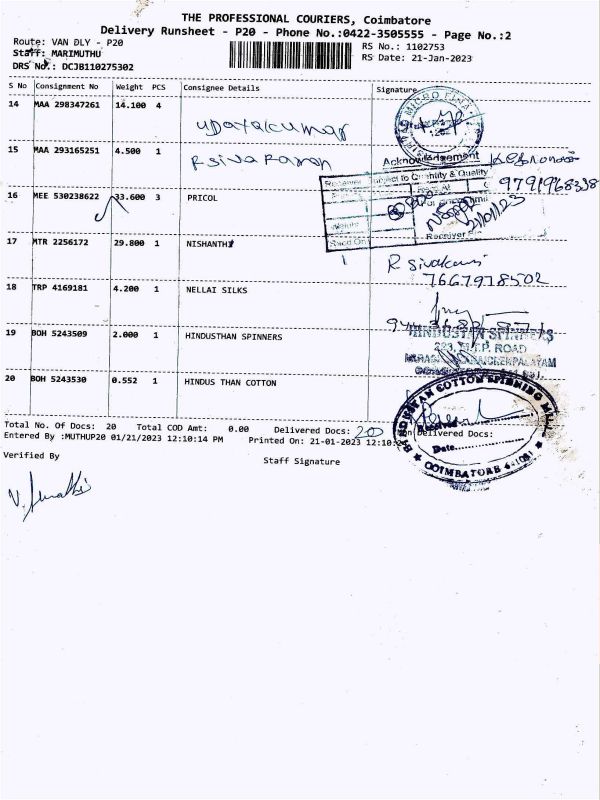 THE PROFESSIONAL COURIERS, Coimbatore
Delivery Runsheet - P20 - Phone No.:0422-3505555 - Page No.:2
Route: VAN DLY - P20
Staff: MARIMUTHU
DRS No.: DCJB110275302
RS No.: 1102753
RS Date: 21-Jan-2023
S No Consignment No Weight PCS Consignee Details Signature
14 MAA 298347261 14.100 4
Udayakumar
15 MAA 293165251 4.500 1
R Siva Raman
Acknowledgement
Subject to Quantity & Quality
9791968338
16 MEE 530238622 33.600 3 PRICOL
21/01/23
Receiver
17 MTR 2256172 29.800 1 NISHANTHI
R Sivakumar
7667978502
18 TRP 4169181 4.200 1 NELLAI SILKS
19 BOH 5243509 2.000 1 HINDUSTHAN SPINNERS
HINDUSTAN SPINNERS
20 BOH 5243530 0.552 1 HINDUS THAN COTTON
HINDUSTAN COTTON SPINNING MILLS
Received
Date
COIMBATORE
Total No. Of Docs: 20 Total COD Amt: 0.00 Delivered Docs: 20 Un Delivered Docs:
Entered By :MUTHUP20 01/21/2023 12:10:14 PM Printed On: 21-01-2023 12:10:
Verified By
Staff Signature